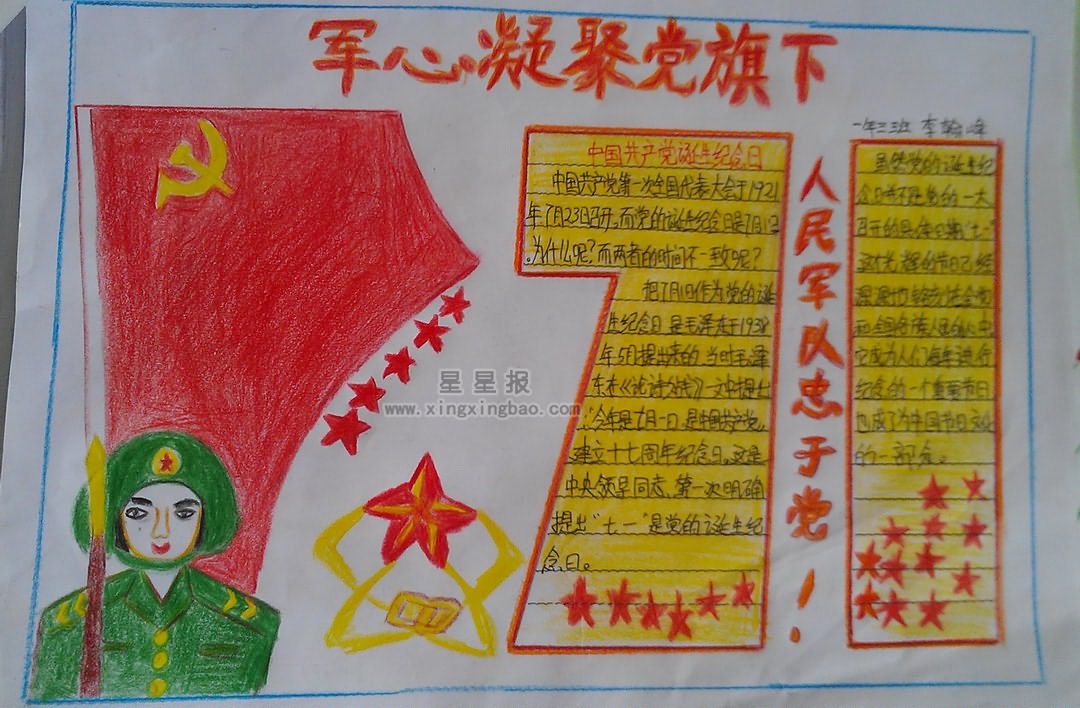 军心凝聚党旗下
一年三班 李翰峰
中国共产党诞生纪念日
中国共产党第一次全国代表大会于1921
年7月23日召开。而党的诞生纪念日是7月1日
。为什么呢?而两者的时间不一致呢?
把7月1日作为党的诞
生纪念日,是毛泽东于1938
年5月提出来的。当时毛泽
东在《论持久战》一文中提出
:今年是七月一日,是中国共产党
建立十七周年纪念日。这是
中央领导同志第一次明确
提出“七一”是党的诞生纪
念日。
人民军队忠于党!
虽然党的诞生纪
念日并不是党的一大
召开的具体日期,“七一”
这个光辉的节日已经
深深地铭刻在全党
和全国各族人民的心中
它成为人们每年进行
纪念的一个重要节日
也成了为中国节日文化
的一部念。
星星报
www.xingxingbao.com